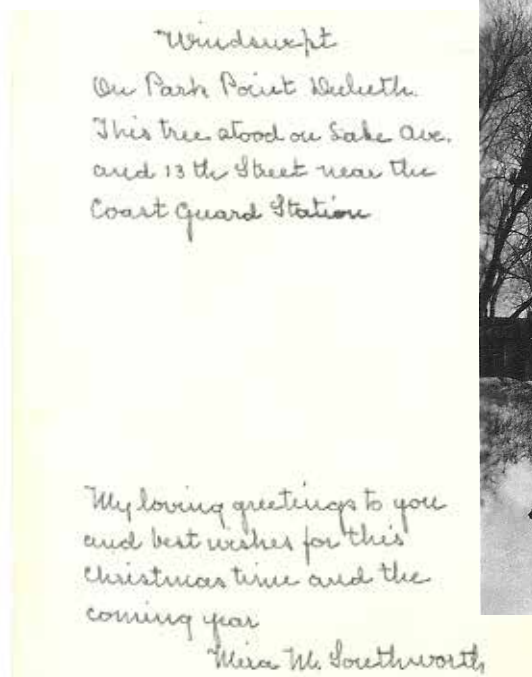 Windswept
On Park Point Duluth.
This tree stood on Lake Ave.
and 13th Street near the
Coast Guard Station
My loving greetings to you
and best wishes for this
Christmas time and the
coming year
Mira M. Southworth